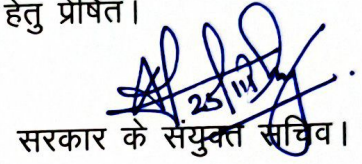 हेतु प्रेषित।
25/11
सरकार के संयुक्त सचिव।